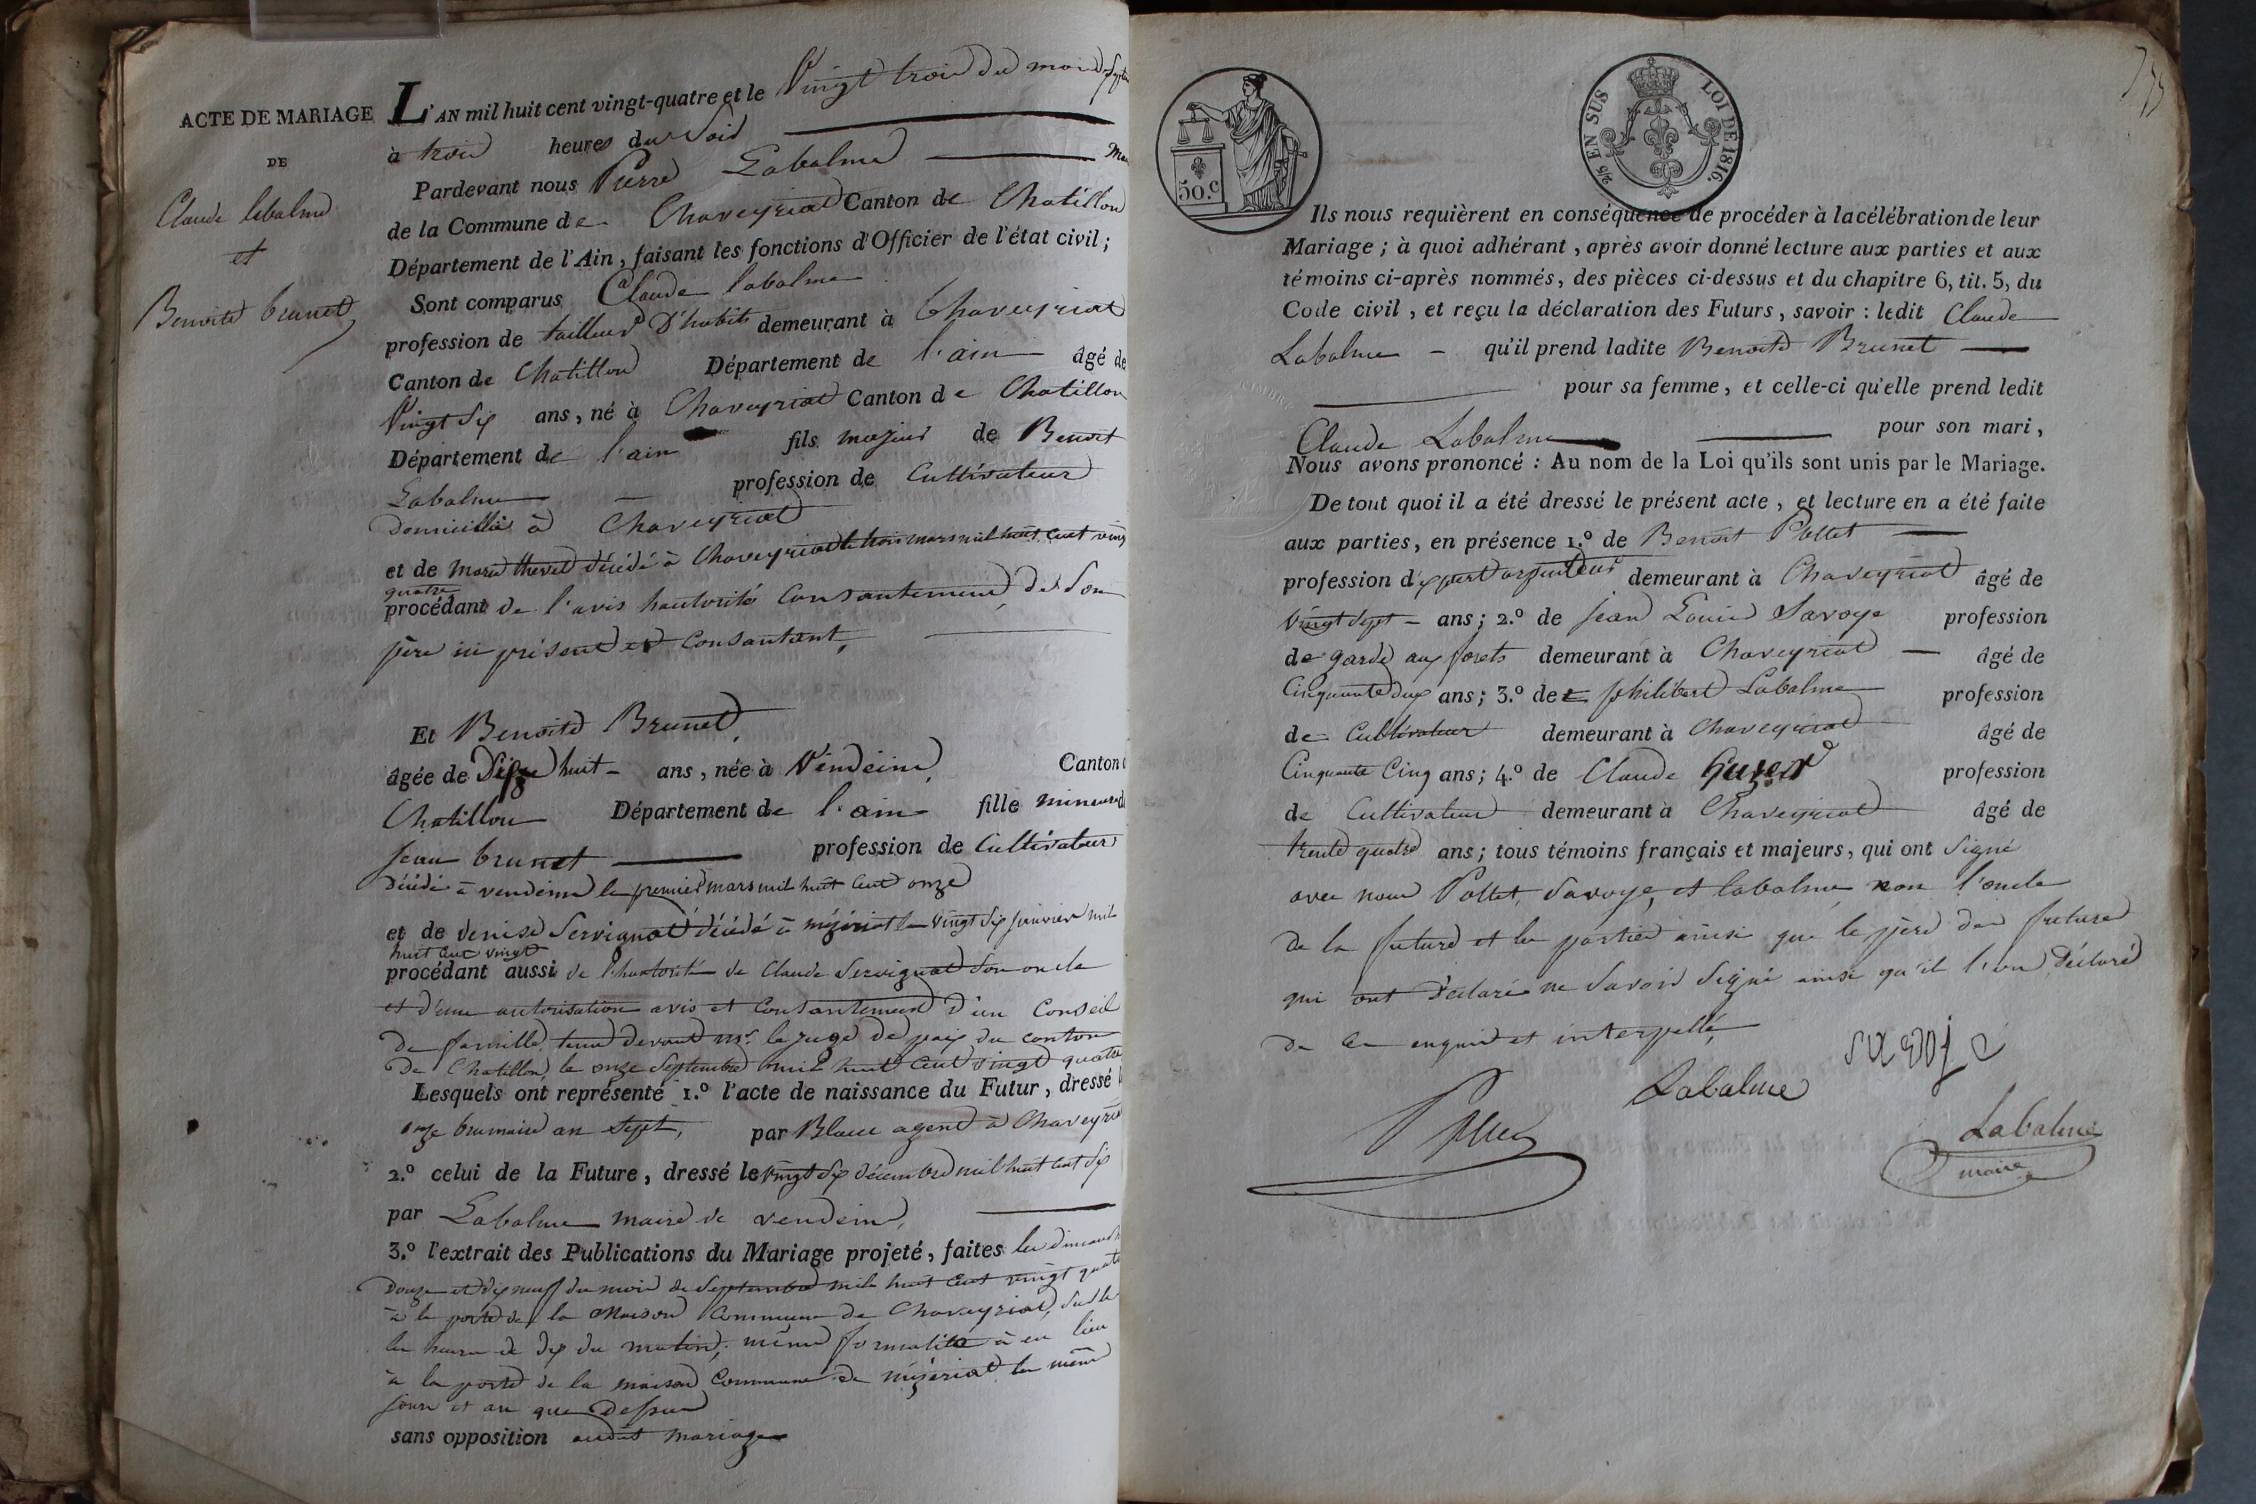 ACTE DE MARIAGE
DE
Claude labalme
et
Benoite brunet
L'AN mil huit cent vingt-quatre et le Vingt trois du mois Septem
à trois heures du Soir
Pardevant nous Pierre Labalme Mai
de la Commune de Chaveyriat Canton de Chatillon
Département de l'Ain, faisant les fonctions d'Officier de l'état civil;
Sont comparus Claude labalme
profession de tailleur D'habits demeurant à Chaveyriat
Canton de Chatillon Département de l'ain âgé de
Vingt Six ans, né à Chaveyriat Canton de Chatillon
Département de l'ain fils majeur de Benoit
Labalme profession de Cultivateur
Domicilié à Chaveyriat
et de marie thevet décédé à Chaveyriat le trois mars mil huit cent vingt
quatre
procédant de l'avis hautorité Consantement de Son
père ici présent et Consantant,
Et Benoite Brunet,
âgée de Dix huit ans, née à Vendeins, Canton d
Chatillon Département de l'ain fille mineure de
Jean brunet profession de Cultivateur
Décédé à vendeins le premier mars mil huit cent onze
et de denise Servignat décédé à mézériat le vingt Six janvier mil
huit cent vingt
procédant aussi de l'hautorité de Claude Servignat Son oncle
et d'une autorisation avis et Consantement D'un Conseil
De famille tenu devant mr. le juge de paix du canton
De Chatillon, le onze Septembre mil huit Cent vingt quatre
Lesquels ont représenté 1.º l'acte de naissance du Futur, dressé l
onze brumaire an Sept, par Blanc agent à Chaveyriat
2.º celui de la Future, dressé le vingt Six décembre mil huit cent Six
par Labalme maire de vendeins,
3.º l'extrait des Publications du Mariage projeté, faites les dimanches
Douze et dix neuf du mois de Septembre mil huit Cent vingt quatre
à la porte de la Maison Commune de Chaveyriat, Sur le
les heures de dix du matin, même formalité à eu lieu
à la porte de la maison Commune de mézériat les même
jours et an que Dessus
sans opposition audit mariage
50.c
25 EN SUS LOI DE 1816.
Ils nous requièrent en conséquence de procéder à la célébration de leur
Mariage; à quoi adhérant, après avoir donné lecture aux parties et aux
témoins ci-après nommés, des pièces ci-dessus et du chapitre 6, tit. 5, du
Code civil, et reçu la déclaration des Futurs, savoir: ledit Claude
Labalme qu'il prend ladite Benoite Brunet
pour sa femme, et celle-ci qu'elle prend ledit
Claude Labalme pour son mari,
Nous avons prononcé: Au nom de la Loi qu'ils sont unis par le Mariage.
De tout quoi il a été dressé le présent acte, et lecture en a été faite
aux parties, en présence 1.º de Benoit Pollet
profession d'expert arpenteur demeurant à Chaveyriat âgé de
vingt Sept ans; 2.º de Jean Louis Savoye profession
de garde aux forets demeurant à Chaveyriat âgé de
Cinquante deux ans; 3.º de philibert Labalme profession
de Cultivateur demeurant à Chaveyriat âgé de
Cinquante Cinq ans; 4.º de Claude profession
de Cultivateur demeurant à Chaveyriat âgé de
trente quatre ans; tous témoins français et majeurs, qui ont Signé
avec nous Pollet, Savoye, et labalme non l'oncle
de la future et les parties ainsi que le père du future
qui ont déclaré ne Savoir Signé ainsi qu'il l'on Déclaré
De ce enquis et interpellé,
Labalme savoye
Pollet
Labalme
maire